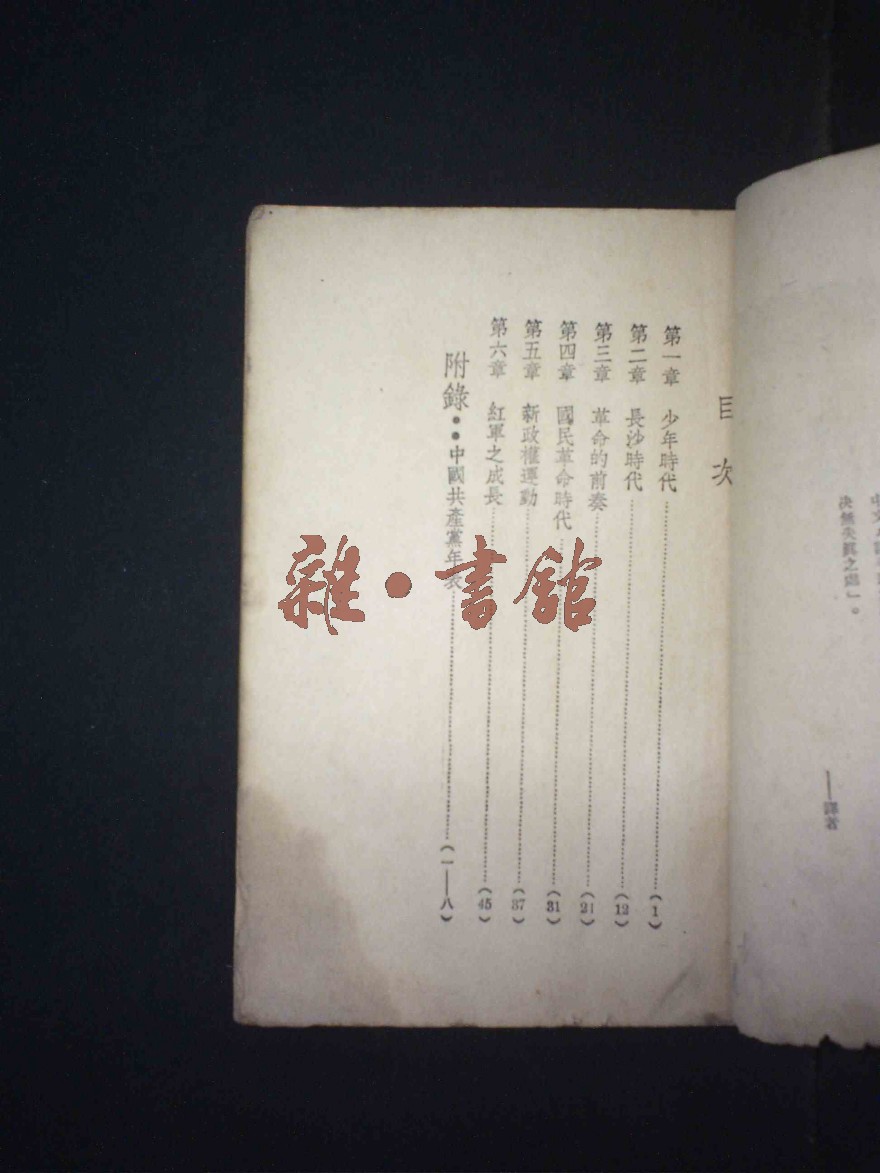 決無失眞之處」。
——譯者
目次
第一章　少年時代……(1)
第二章　長沙時代……(12)
第三章　革命的前奏……(21)
第四章　國民革命時代……(31)
第五章　新政權運動……(37)
第六章　紅軍之成長……(45)
附錄‥中國共產黨年表……(一——八)
雜・書館